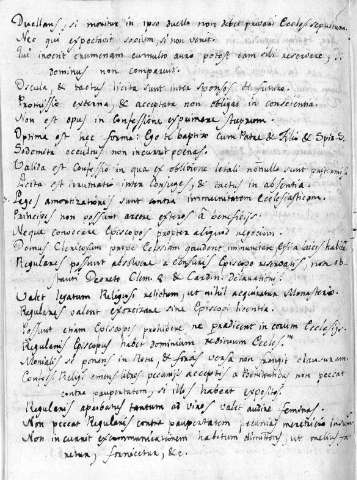 Duellans, si moritur in ipso duello non debet privari Ecclesiæ sepultura.
Nec qui expectavit socium, si non venit.
Qui invenit crumenam cum multo auro, potest eam sibi reservare, si
dominus non comparuit.
Oscula, & tactus licita sunt inter sponsos de futuro.
Promissio externa, & acceptata non obligat in conscientia.
Non est opus in Confessione exprimere stuprum.
Optima est hec forma: Ego te baptizo cum Patre & Filio &
Sodomita occidens non incurrit poenas.
Valida est Confessio in qua ex oblivione letali nonnulla sunt
Licita est inter Conjuges, & tactus in absentia.
Leges amortizationis sunt contra immunitatem Ecclesiasticam.
Principes non possunt arcere exteros a beneficiis.
Neque convocare Episcopos propter aliquod negocium.
Domus Clericorum gaudent immunitate
Regulares possunt absolvere a Casibus Episcopo reservatis non ob-
stanti Decreto Clem. & Cardin. Declarationi.
Valet legatum Religioso relictum, ut nihil acquiratur Monasterio.
Regulares valent exorcizare sine Episcopi licentia.
Possunt etiam Episcopos prohibere ne predicent in eorum Ecclesiis.
Regularis Episcopus habet dominium redituum Ecclesiæ.
Monialis se ponens in Rota, & foras versa non frangit clausuram.
Confess. Relig. pecuniis acceptis a non peccat
contra paupertatem, si illos habeat expositos
Regularis approbatus tantum ad viros valet audire feminas.
Non peccat Regularis contra paupertatem,
Non incurrit excommunicationem habitum dimittens, ut melius
furetur, fornicetur, &c.